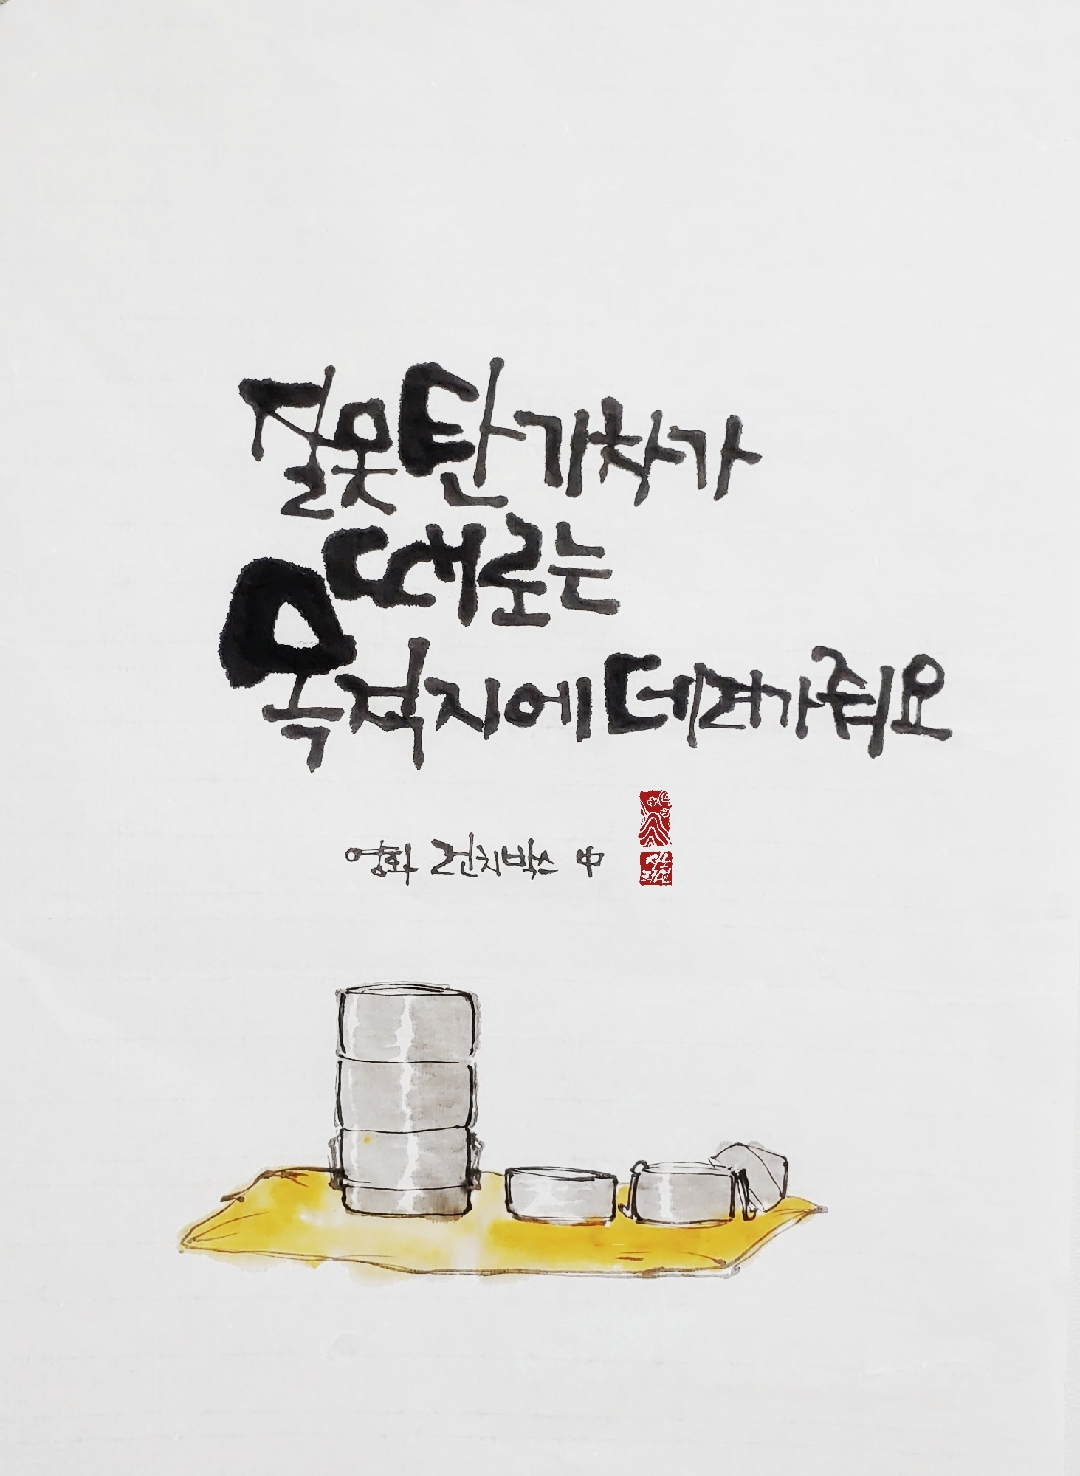 잘못탄 기차가
때로는
목적지에 데려가줘요
영화 런치박스 中